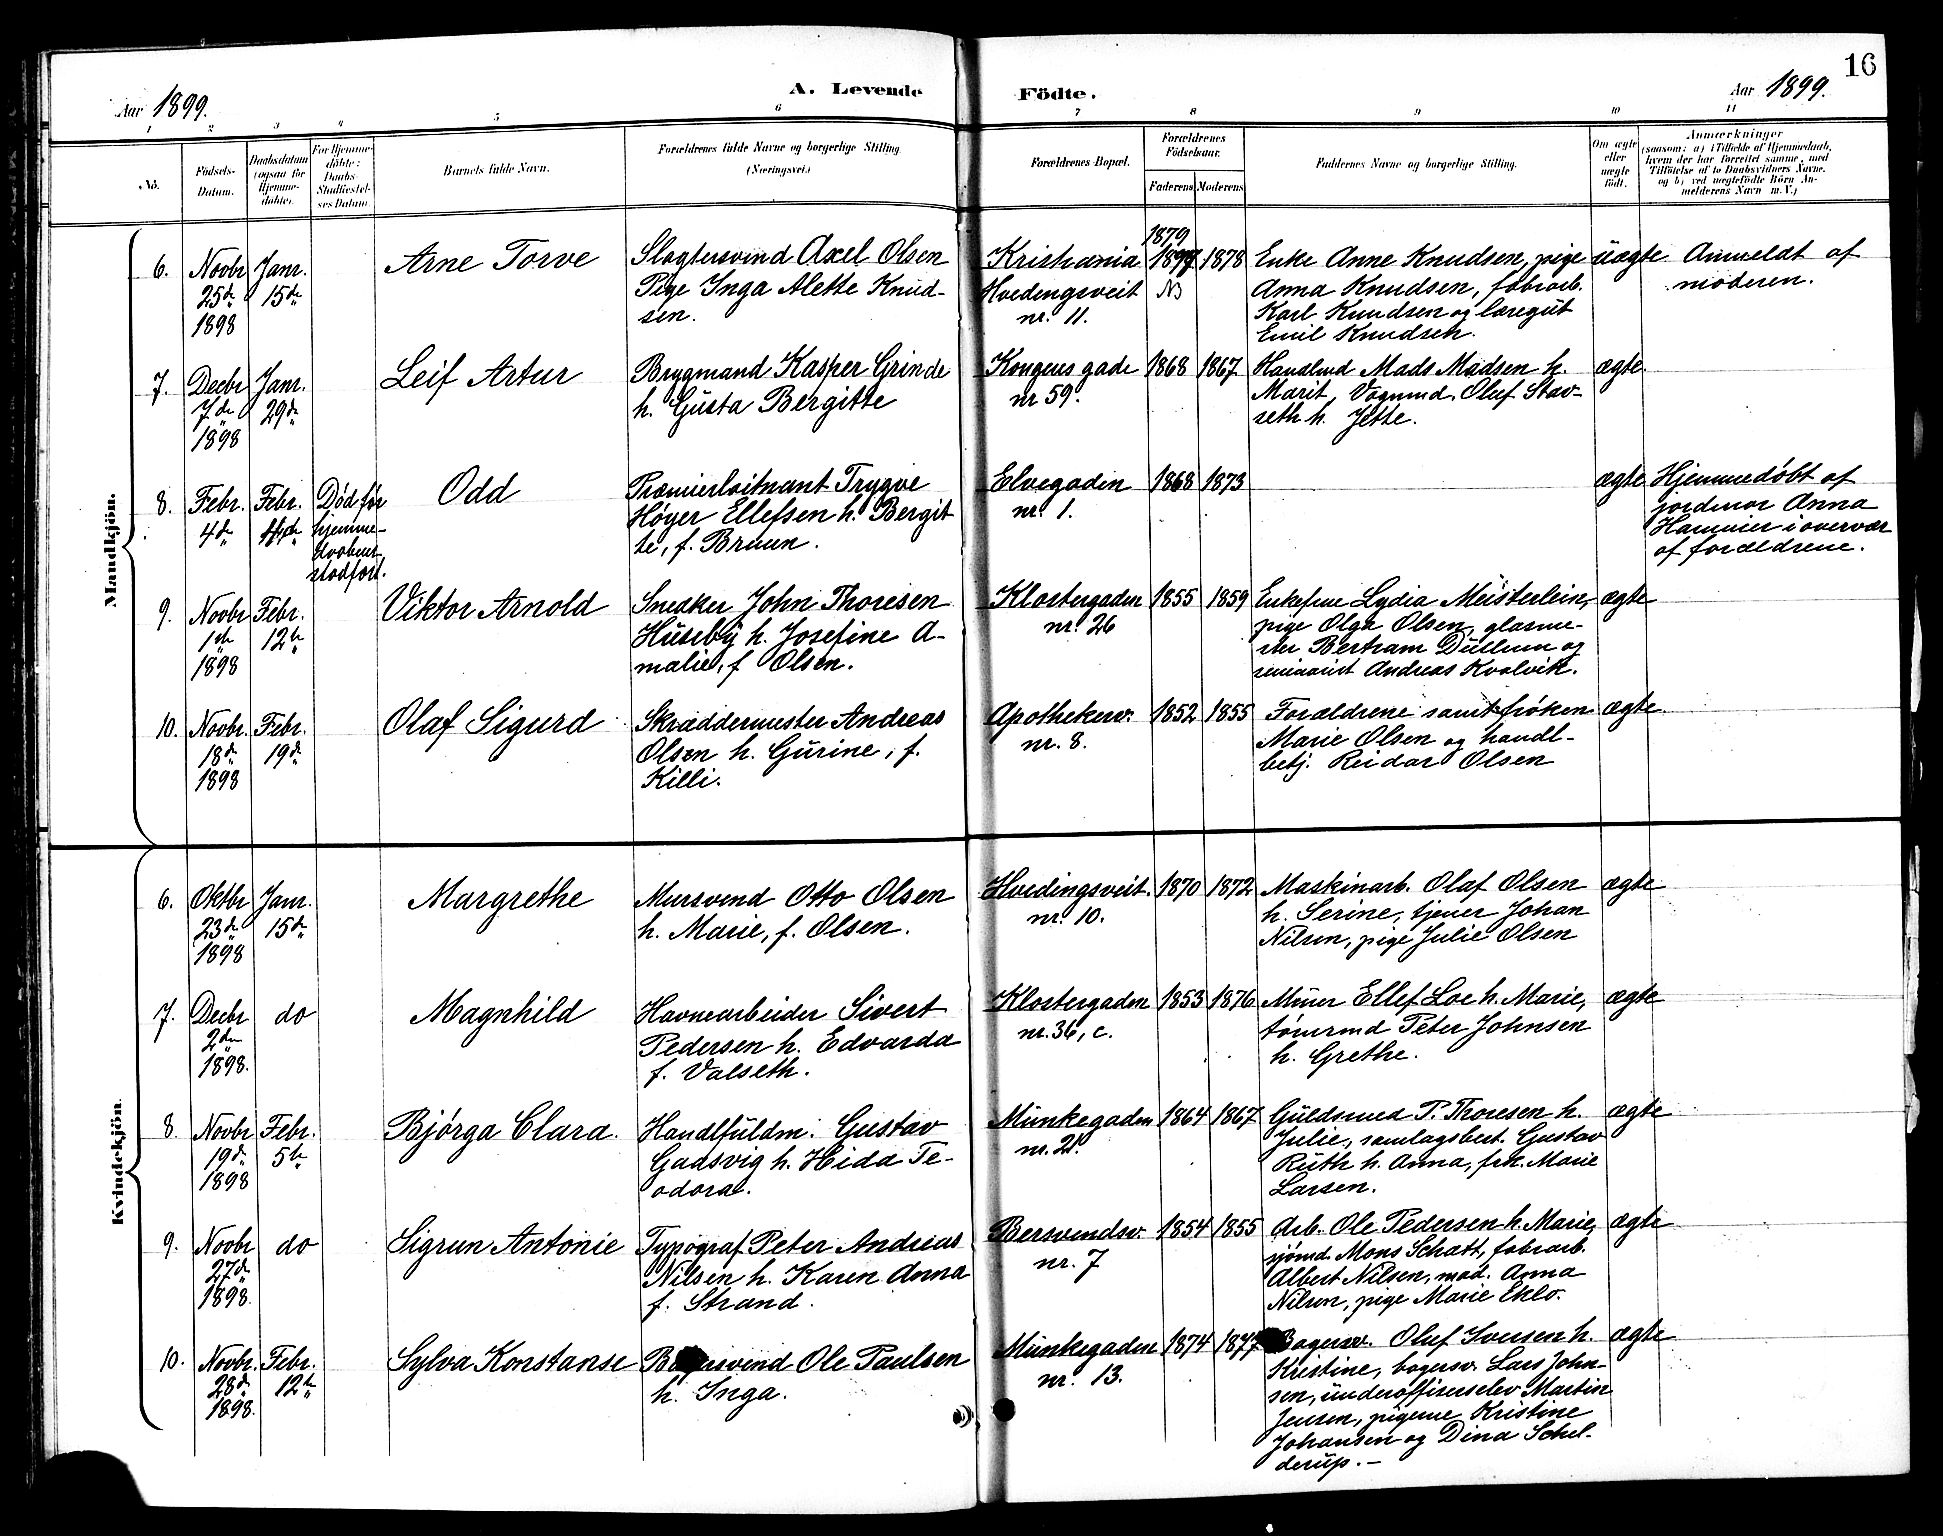 16
Aar 1899.
A. Levende Födte.
Aar 1899.
1 2 3 4 5 6 7 8 9 10 11
No.
Födsels-
Datum.
Daabsdatum
(ogsaa for
Hjemme-
döbte).
For Hjemme-
döbte:
Daabs-
Stadfæstel-
ses Datum
Barnets fulde Navn.
Forældrenes fulde Navne og borgerlige Stilling
(Næringsvei.)
Forældrenes Bopæl.
Forældrenes
Födselsaar.
Faderens. Moderens.
Faddernes Navne og borgerlige Stilling.
Om ægte
eller
uægte
født.
Anmærkninger
(saasom: a) i Tilfælde af Hjemmedaab,
hvem der har forrettet samme, med
Tilföielse af to Daabsvidners Navne,
og b) ved uægtefödte Börn An-
melderens Navn m. V.)
Mandkjön.
6.
Novbr
25de
1898
Janr.
15de
Arne Torve
Slagtersvend Axel Olsen
Pige Inga Alette Knud-
sen.
Kristiania
Hvedingsveit
nr. 11.
1879
1897
NB
1878
Enke Anne Knudsen, pige
Anna Knudsen, fabrarb.
Karl Knudsen og læregut
Emil Knudsen.
uægte
Anmeldt af
moderen.
7.
Decbr
7de
1898
Janr.
29de
Leif Artur
Brygmand Kasper Grinde
h. Gusta Bergitte
Kongens gade
nr 59.
1868
1867
Handlmd Mads Madsen h.
Marit, Vognmd. Olaf Stav-
seth h. Jette.
ægte
8.
Febr.
4de
Febr.
4de
Død før
hjemme-
daaben
stadfæst.
Odd
Præmierløitnant Trygve
Høyer Ellefsen h. Bergit
te, f. Bruun.
Elvegaden
nr. 1.
1868
1873
ægte
Hjemmedøbt af
jordmor Anna
i overvær
af forældrene.
9.
Novbr
1ste
1898
Febr.
12te
Viktor Arnold
Snedker John Thoresen
Huseby h. Josefine A-
malie, f Olsen.
Klostergaden
nr. 26
1855
1859
Enkefrue Lydia Meisterlein,
pige Olga Olsen, glasme-
ster Bertram Dullum og
seminarist Andreas Kvalvik.
ægte
10.
Novbr.
18de
1898
Febr.
19de
Olaf Sigurd
Skræddermester Andreas
Olsen h. Gurine, f.
Killi.
Apothekerv.
nr. 8.
1852
1855
Forældrene samt frøken
Marie Olsen og handl-
betj. Reidar Olsen
ægte
Kvindekjön.
6.
Oktbr
23de
1898
Janr.
15de
Margrethe
Mursvend Otto Olsen
h. Marie, f. Olsen.
Hvedingsveit.
nr. 10.
1870
1872
Maskinarb. Olaf Olsen
h. Serine, tjener Johan
Nilsen, pige Julie Olsen
ægte
7.
Decbr
2den
1898.
do
Magnhild
Havnearbeider Sivert
Pedersen h. Edvarda
f. Valseth.
Klostergaden
nr. 36, c.
1853
1876
Murer Ellef Loe h. Marie,
tømrmd Peter Johnsen
h. Grethe.
ægte
8
Novbr
19de
1898
Febr.
5te
Bjørga Clara.
Handlfuldm. Gustav
Gadsvig h. Hida Te-
odora.
Munkegaden
nr. 21.
1864
1867
Guldsmed P. Thoresen h.
Julie, samlagsbest. Gustav
Ruth h. Anna, frk. Marie
Larsen.
ægte
9.
Novbr
27de
1898.
do
Sigrun Antonie
Typograf Peter Andreas
Nilsen h. Karen Anna
f. Strand.
Bersvendsv.
nr. 7
1854
1855
Arb. Ole Pedersen h. Marie,
sjømd. Mons Schatt, fabrarb.
Albert Nilsen, mad. Anna
Nilsen, pige Marie Eklo.
ægte
10.
Novbr.
28de
1898.
Febr.
12te
Sylva Konstanse
Bagersvend Ole Paulsen
h. Inga.
Munkegaden
nr. 13.
1874
1877
Bagersv. Oluf Iversen h.
Kristine, bagersv. Lars John-
sen, underofficerselev Martin
Jensen, pigerne Kristine
Johansen og Dina Schel-
derup. —
ægte